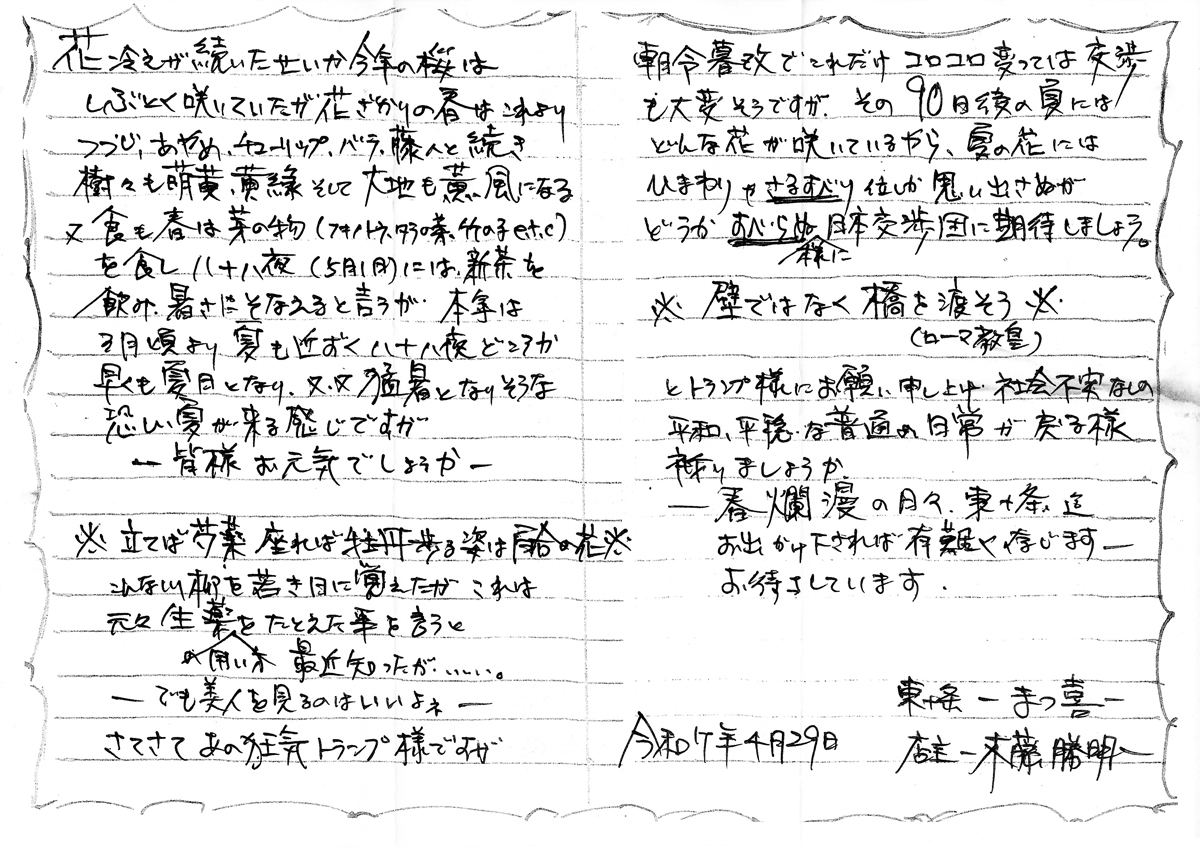 花冷えが続いたせいか今年の桜は
しぶとく咲いていたが花ざかりの春はこれより
つつじ、あやめ、チューリップ、バラ、藤へと続き
樹々も萌黄、黄緑そして大地も薫風になる
又食も春は芽の物(フキノトウ、タラの芽、竹の子etc)
を食し八十八夜(5月1日)には新茶を
飲み、暑さにそなえると言うが本年は
3月頃より夏も近ずく八十八夜どころか
早くも夏日となり、又、又猛暑となりそうな
恐しい夏が来る感じですが
ー皆様お元気でしょうかー
※立てば芍薬 座れば牡丹 歩る姿は百合の花※
こんな言い柳を若き日に覚えたがこれは
元々生薬の用い方をたとえた事を言うと
最近知ったが……。
ーでも美人を見るのはいいよネー
さてさてあの狂気トランプ様ですが
朝令暮改でこれだけコロコロ変っては交渉
も大変そうですが、その90日後の夏には
どんな花が咲いているやら、夏の花には
ひまわりやさるすべり位しか思い出さぬが
どうかすべらぬ様に日本交渉団に期待しましょう。
※ 壁ではなく橋を渡そう ※
(ローマ教皇)
とトランプ様にお願い申し上げ 社会不実なしの
平和、平穏な普通の日常が戻る様
祈りましょうか
ー春爛漫の日々、東十条迄
お出かけ下されば有難く存じますー
お待ちしています.
東十条 ーまつ喜ー
令和7年4月29日
店主ー木藤勝明ー